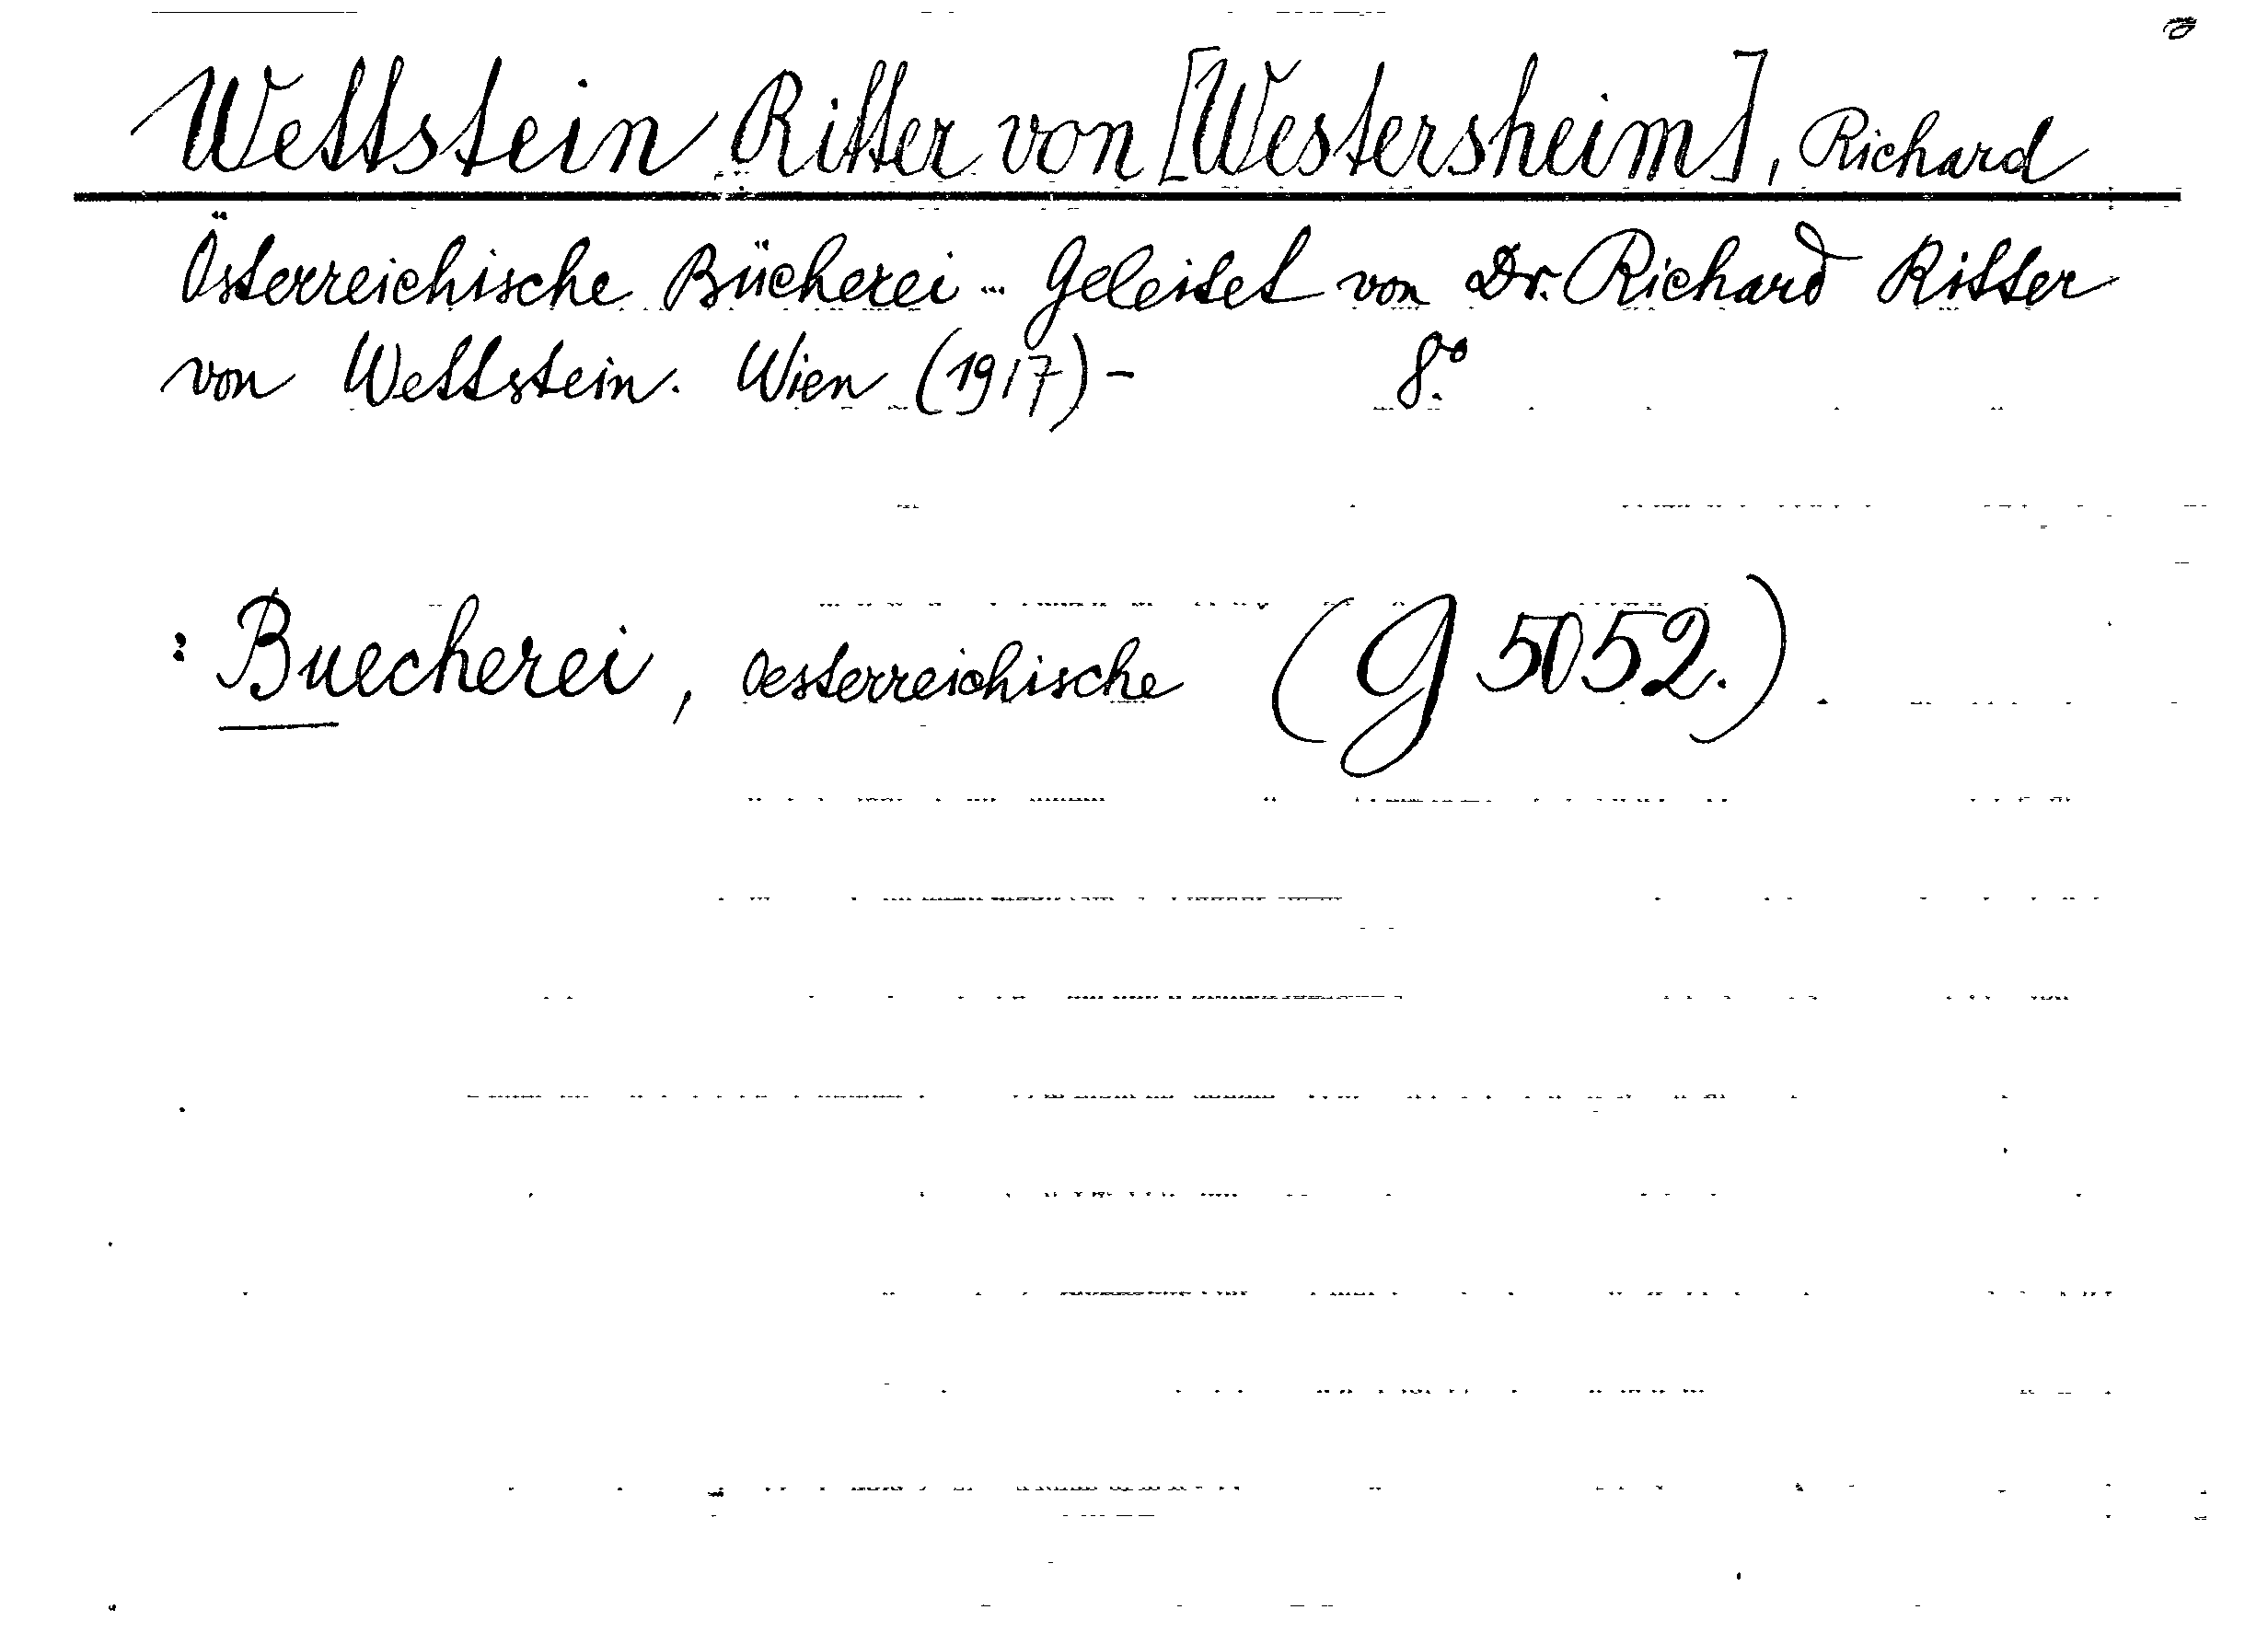 Wettstein Ritter von [Westersheim], Richard
Österreichische Bücherei ... Geleitet von Dr. Richard Ritter
von Wettstein. Wien (1917) - 8.°
: Buecherei, Oesterreichische (G 5052.)